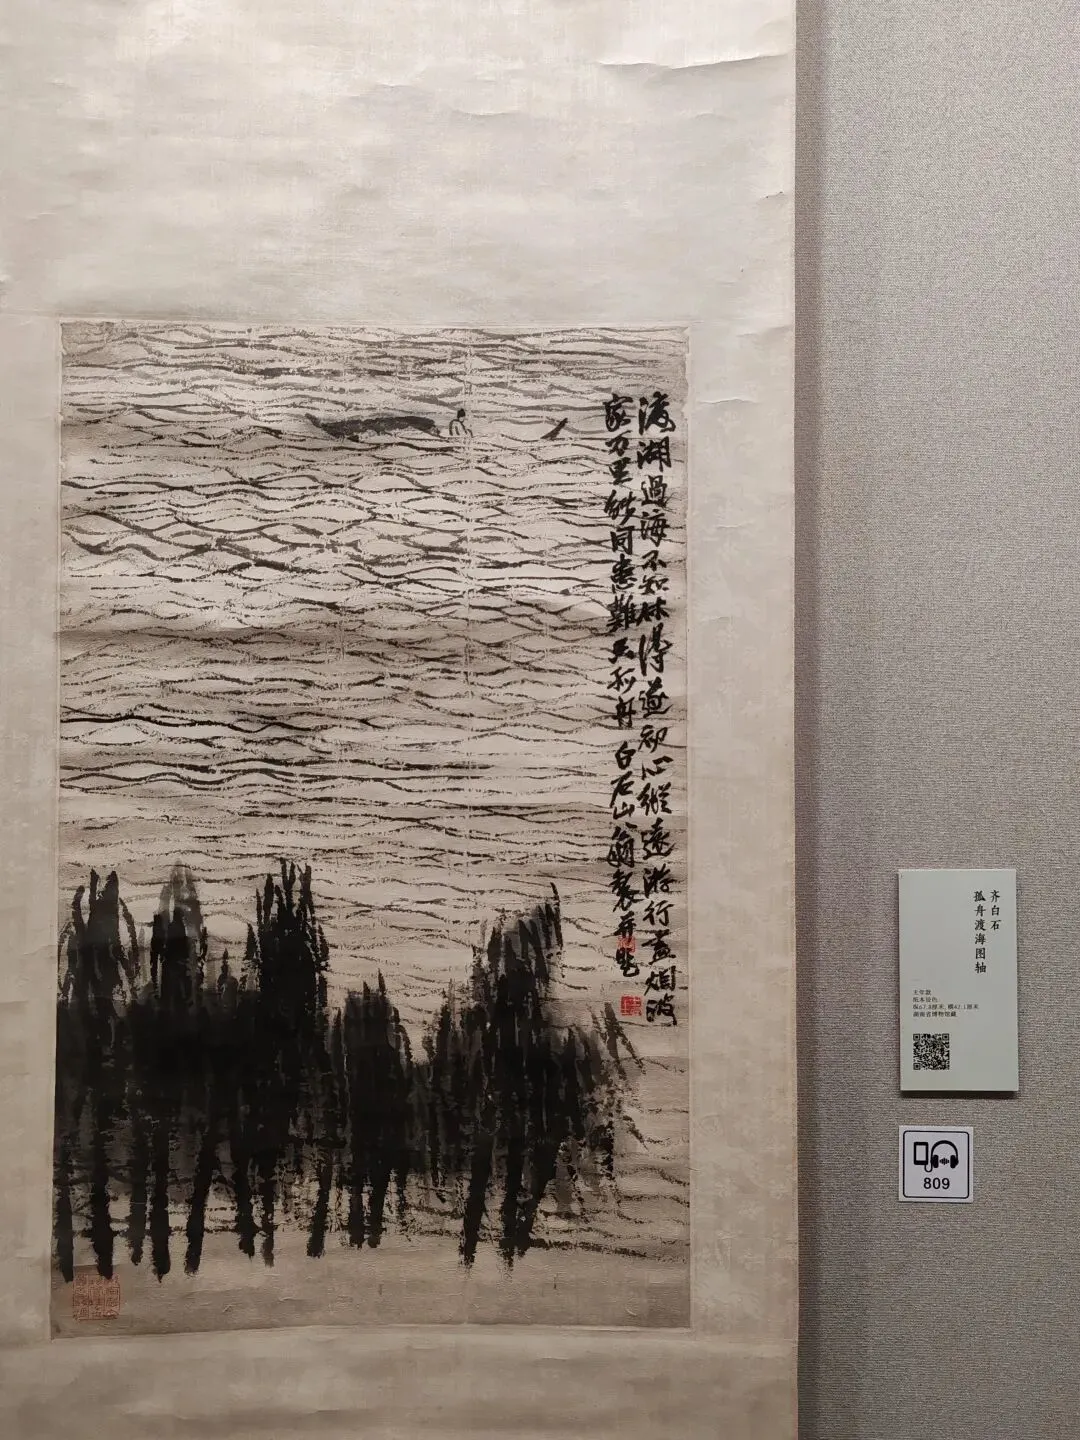 渡湖過海不知休得遂初心縱遠游行盡烟波
家万里能同患難只孤舟 白石山翁製并題
齐白石
孤舟渡海图轴
无年款
纸本设色
纵67.8厘米, 横42.1厘米
湖南省博物馆藏
809